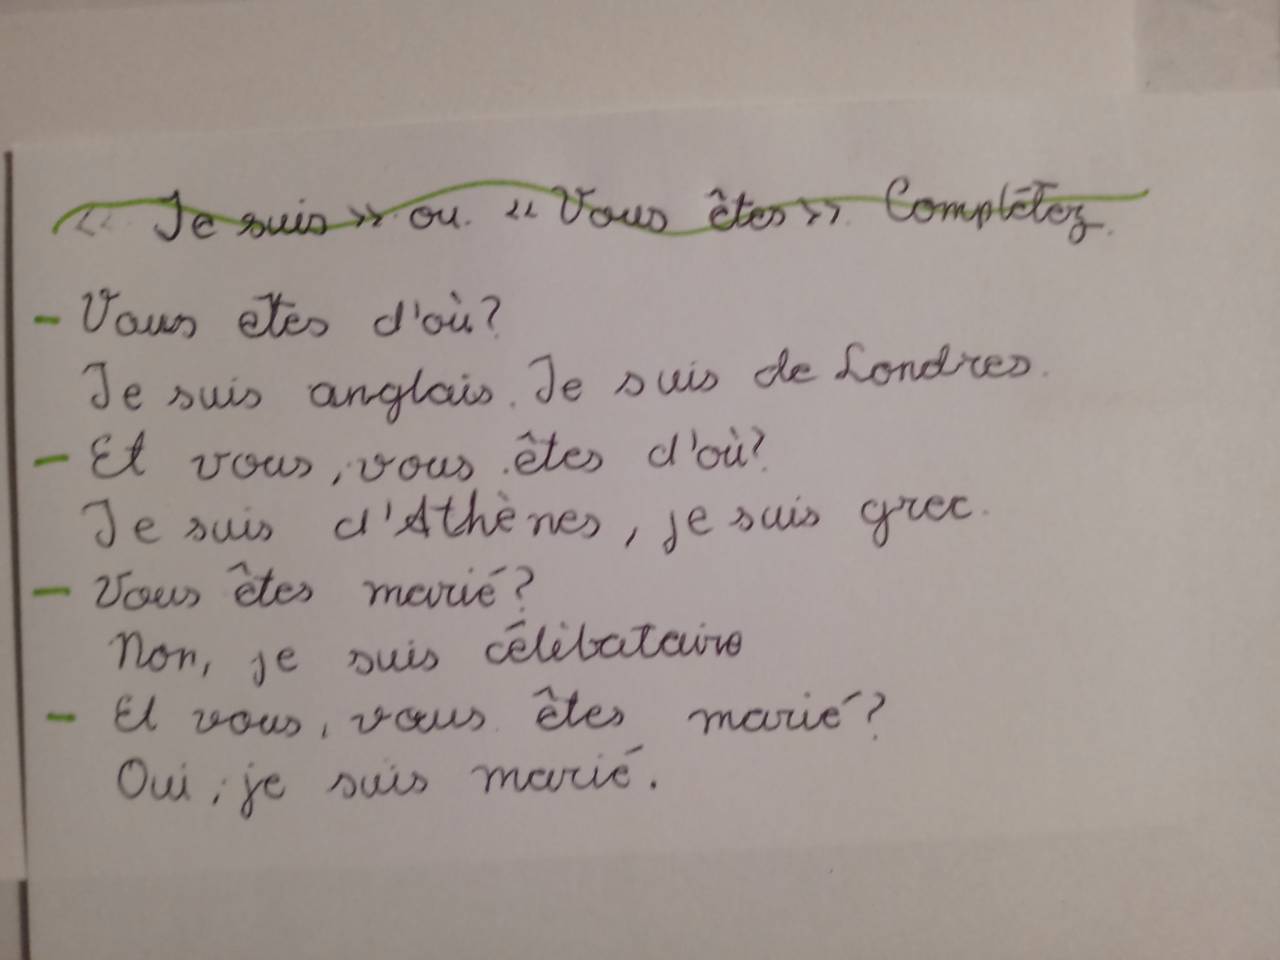 « Je suis » ou « Vous êtes » Complétez.
- Vous etes d'où?
Je suis anglais. Je suis de Londres.
- Et vous, vous êtes d'où?
Je suis d'Athènes, je suis grec.
- Vous êtes marié?
Non, je suis célibataire
- Et vous, vous êtes marié?
Oui, je suis marié.